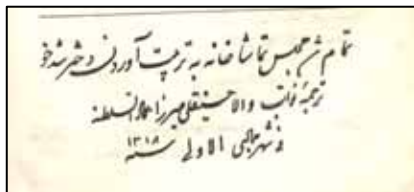 تمام شد مجلس تماشاخانه به تربیت آوردن دختر تندخو
ترجمهٔ نواب والا حسینقلی میرزا عمادالسلطنه
فی شهر جمادی الاولی سنه ۱۳۱۸